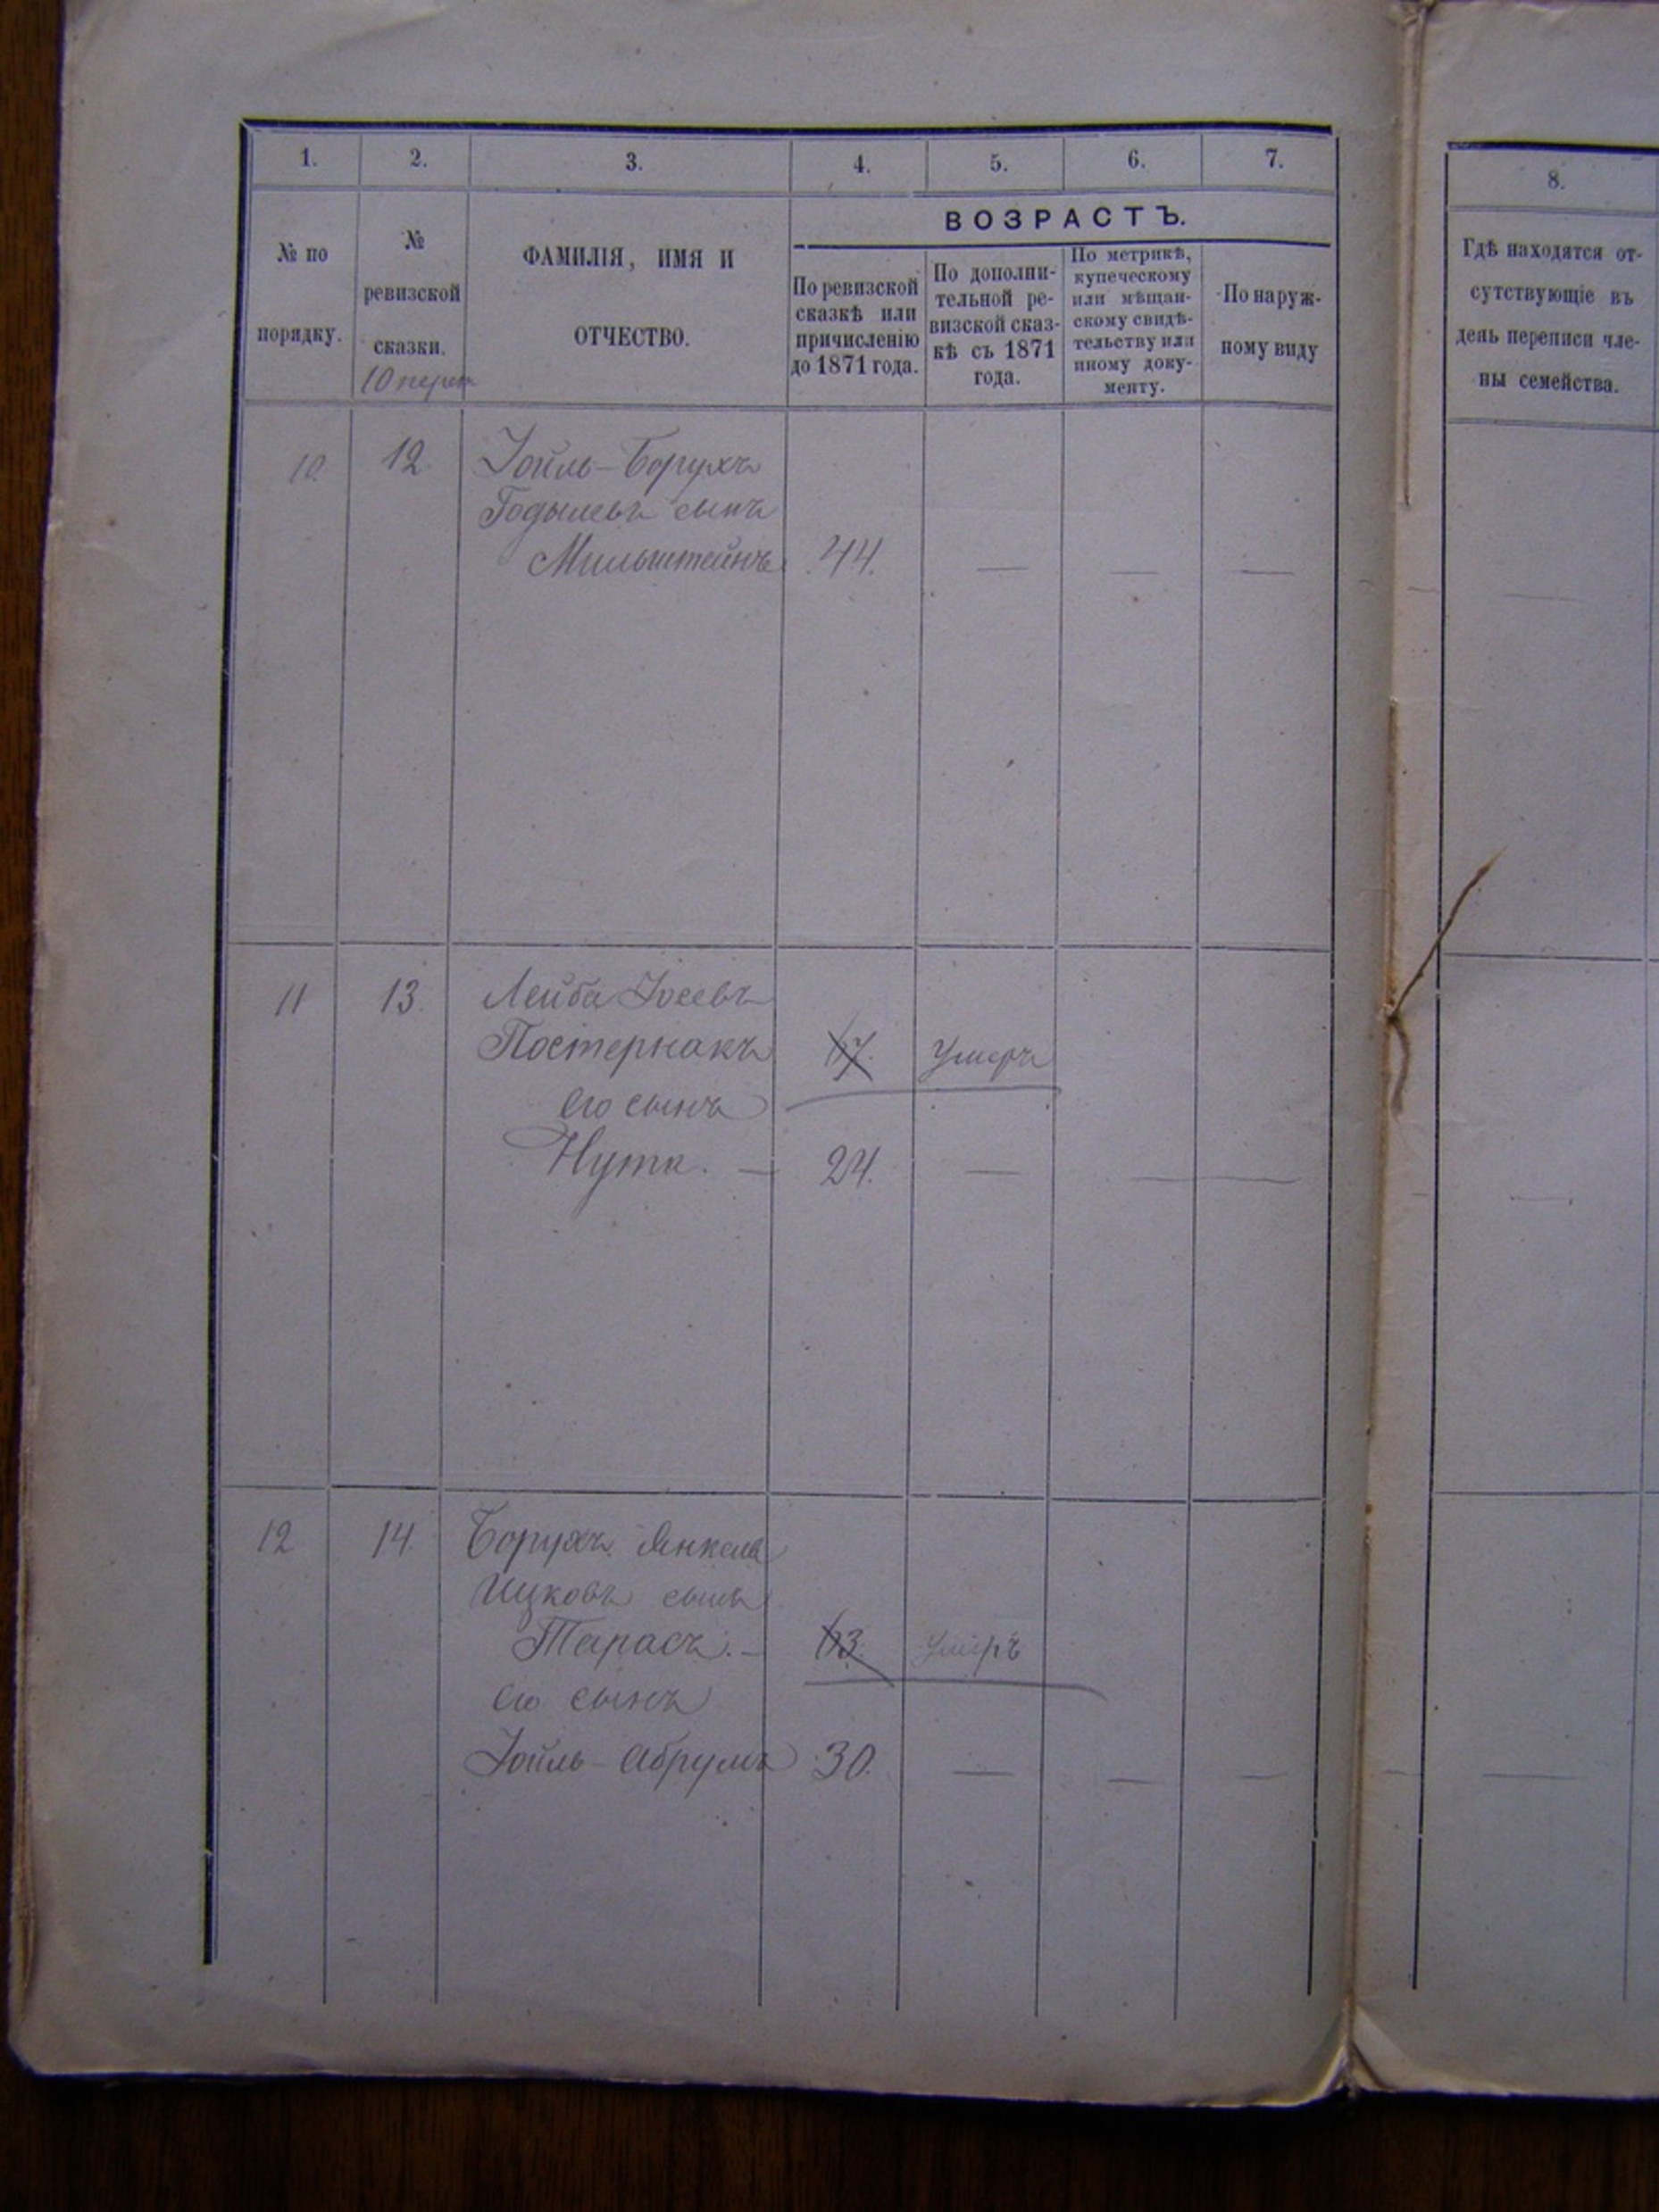 1. 2. 3. 4. 5. 6. 7.
8.
№ по
порядку.
№
ревизской
сказки.
10 переп
ФАМИЛІЯ, ИМЯ И
ОТЧЕСТВО.
ВОЗРАСТЪ.
По ревизской
сказкѣ или
причисленію
до 1871 года.
По дополни-
тельной ре-
визской сказ-
кѣ съ 1871
года.
По метрикѣ,
купеческому
или мѣщан-
скому свидѣ-
тельству или
иному доку-
менту.
По наруж-
ному виду
Гдѣ находятся от-
сутствующіе въ
день переписи чле-
ны семейства.
10. 12. Іойль-Борухъ
Годылевъ сынъ
Мильштейнъ 44. — — — —
11 13. Лейба Іосевъ
Постернакъ 67. Умеръ
его сынъ
Нута. — 24. — — — —
12 14. Борухъ Янкель
Ицковъ сынъ
Тарасъ. — 63. Умеръ
его сынъ
Іойль-Абрумъ 30. — — — —